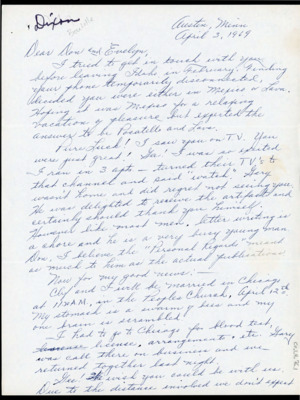 Dixon
Austin, Minn
April 3, 1969
Dear Don and Evelyn,
I tried to get in touch with you
before leaving Idaho in February. Finding
your phone temporarily disconnected, I
decided you were either in Mexico or Lava.
Hoping it was Mexico for a relaxing
vacation & pleasure but expected the
answer to be Pocatello and Lava.
Pure Luck! I saw you on T.V. You
were just great! Gee! I was so excited
I ran in 3 apts - turned their TV's to
that channel and said "watch". Gary
wasn't home and did regret not seeing you.
He was delighted to receive the artifacts and
certainly should thank you himself.
However like most men, letter writing is
a chore and he is a very busy young man.
Don, I believe the "Personal Regards" meant
as much to him as the actual publications.
Now for my good news: —
Clif and I will be married in Chicago
at 11 A.M. in the Peoples Church, April 12th.
My stomach is a swarm of bees and my
one brain is scrambled!
I had to go to Chicago for blood test,
license, arrangements etc. Gary
was call there on business and we
returned together last night.
Gee I wish you could be with us.
Due to the distance involved we don't expect